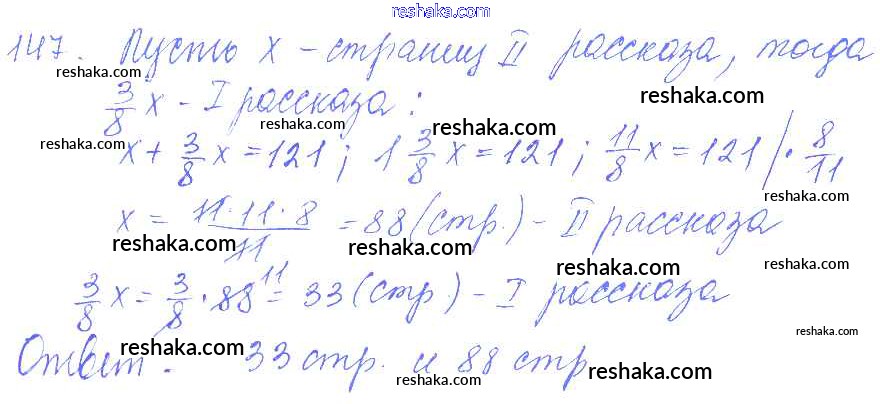 reshaka.com
147. Пусть x - страниц II рассказа, тогда
reshaka.com reshaka.com
3/8 x - I рассказа:
reshaka.com reshaka.com reshaka.com
x + 3/8 x = 121; 1 3/8 x = 121; 11/8 x = 121 | · 8/11
reshaka.com reshaka.com reshaka.com
x = 11·11·8/11 = 88 (стр.) - II рассказа
reshaka.com reshaka.com reshaka.com
3/8 x = 3/8 · 88 11 = 33 (стр) - I рассказа
reshaka.com reshaka.com reshaka.com
Ответ: 33 стр. и 88 стр
reshaka.com reshaka.com reshaka.com